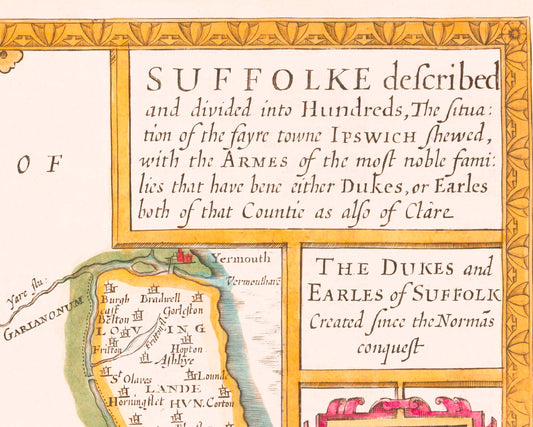 SUFFOLKE described
and divided into Hundreds, The situa:
tion of the fayre towne IPSWICH shewed,
with the ARMES of the most noble fami:
lies that have bene either Dukes, or Earles
both of that Countie as also of Clare
OF
THE DUKES and
EARLES of SUFFOLK
Created since the Normās
conquest
Yermouth
Yare flu:
GARIANONUM
Burgh
cast
Bradwell
Gorleston
Belton
LOVING
Friston
Hopton
Ashbye
St Olaves
Lound
LANDE
Horningflet
HUN.
Corton